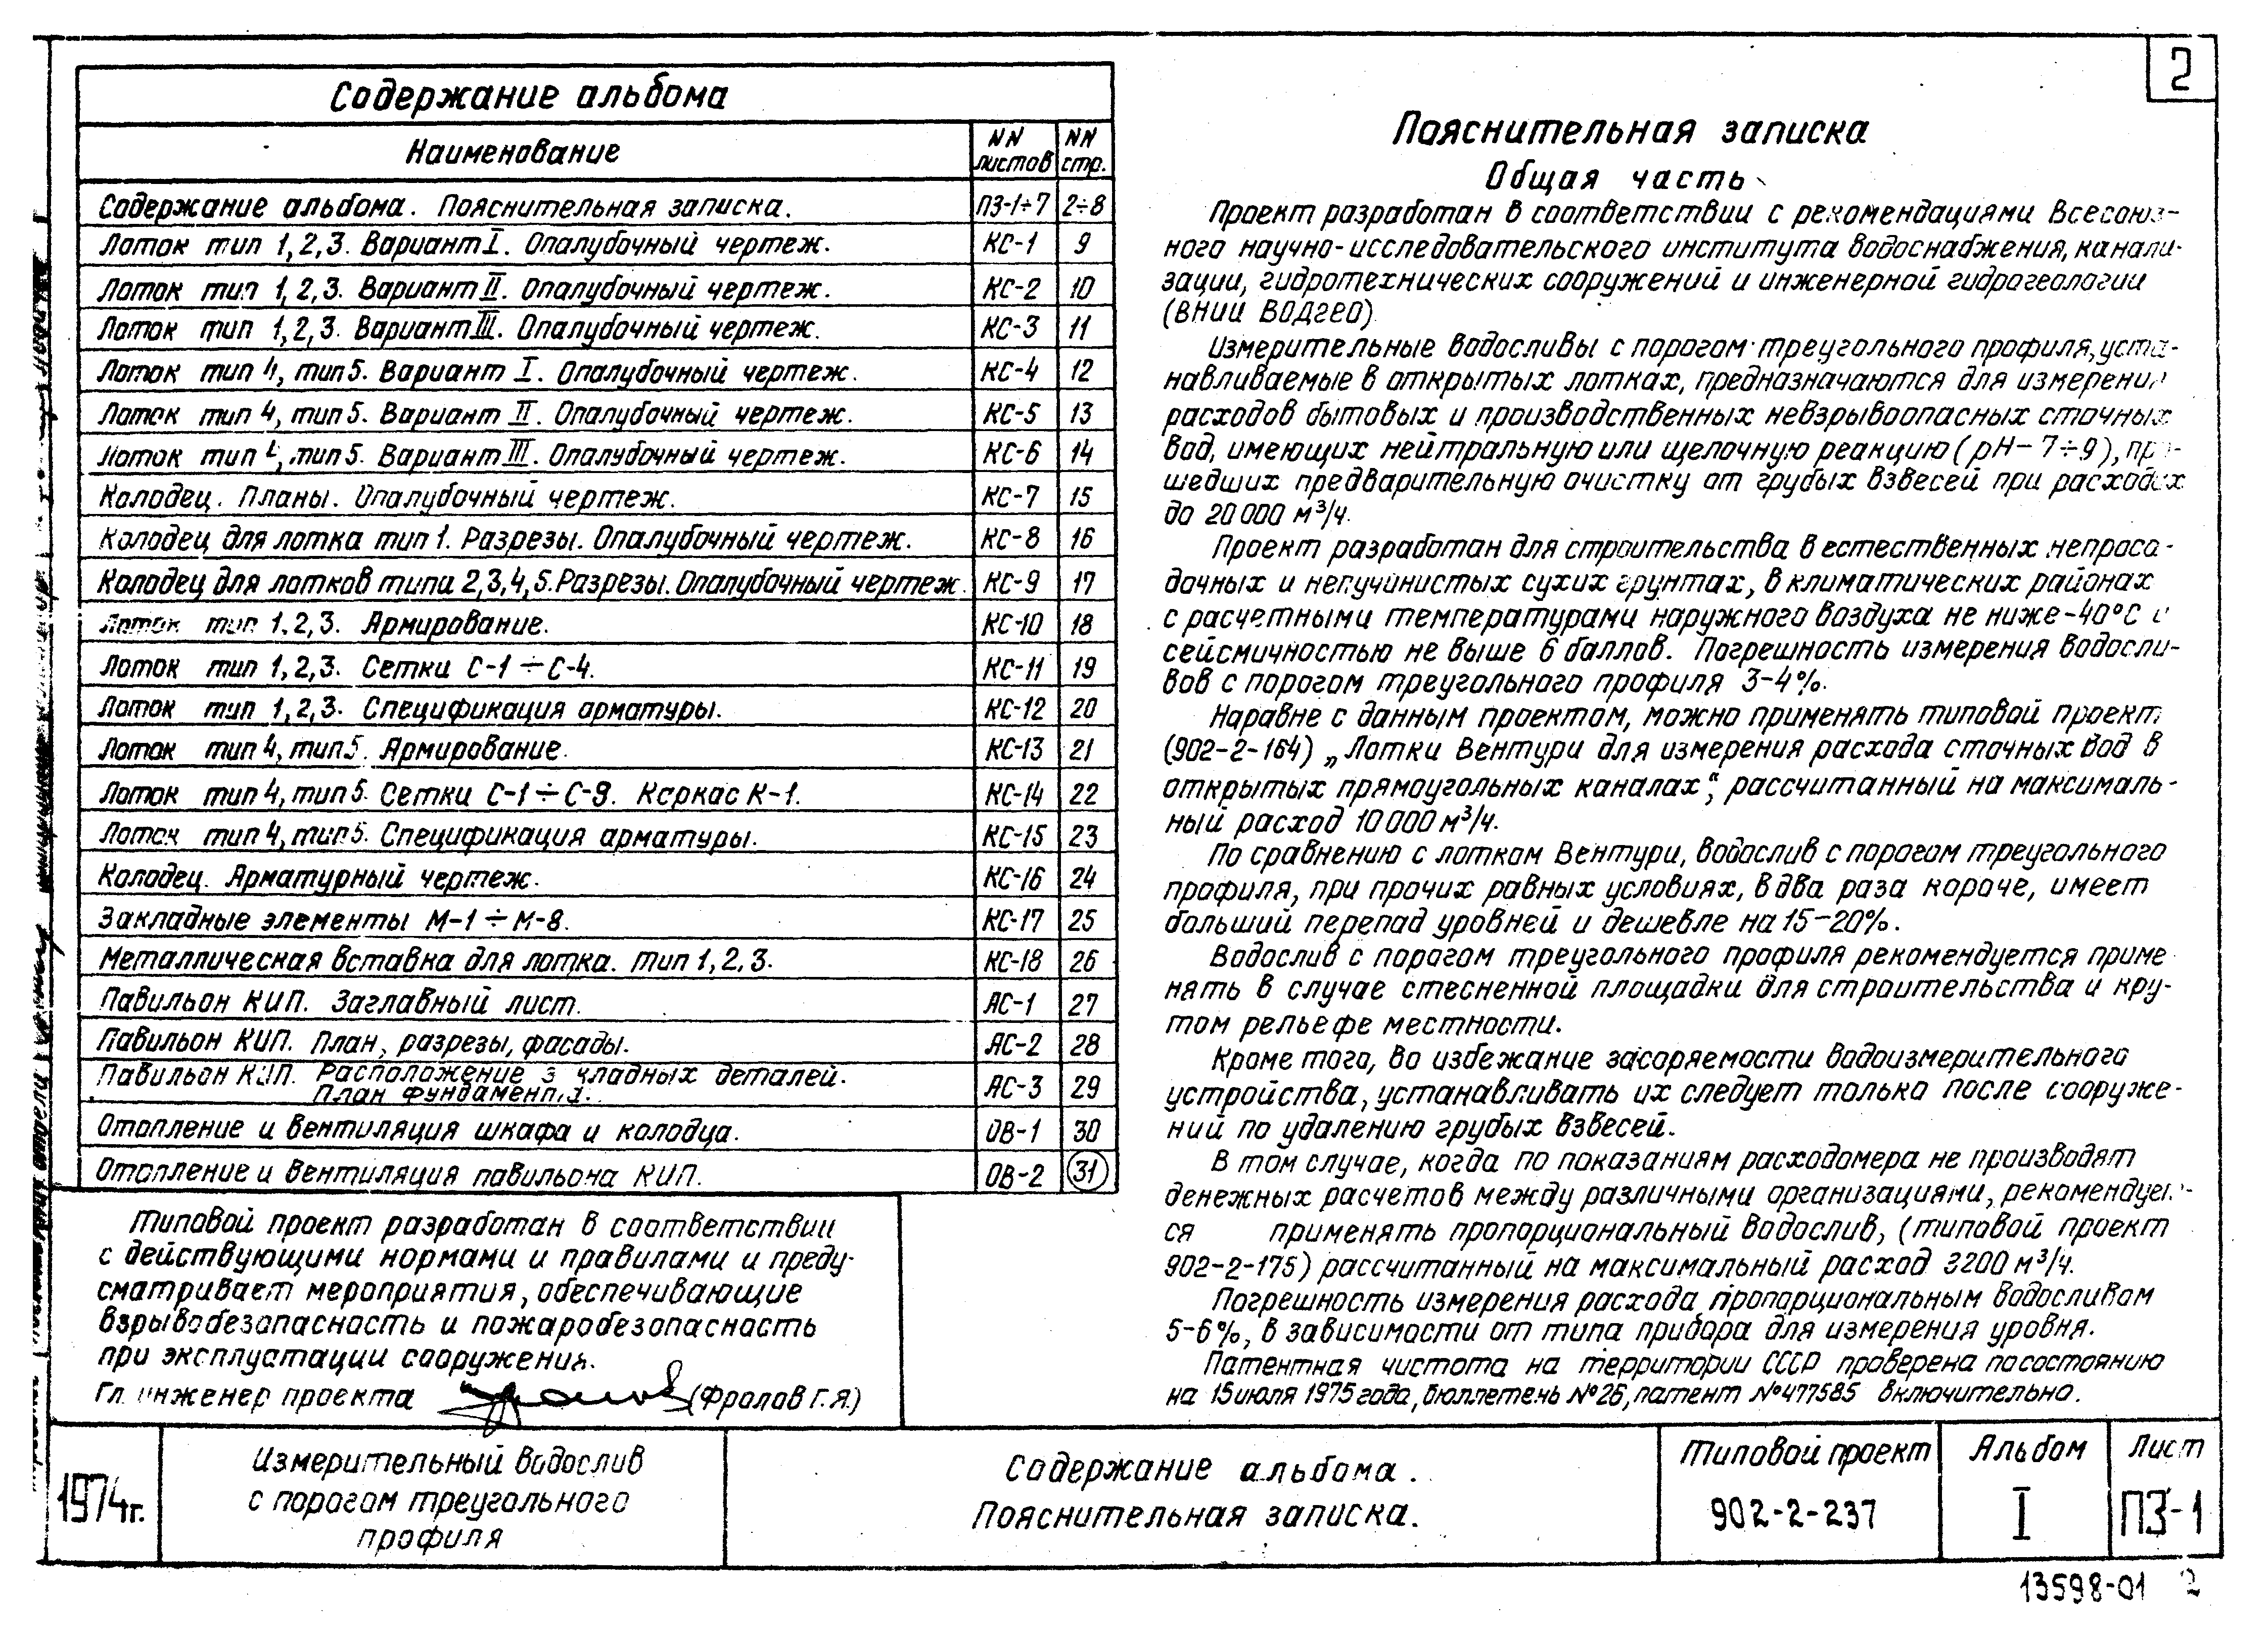 2
Содержание альбома
Наименование
NN листов
NN стр.
Содержание альбома. Пояснительная записка. ПЗ-1÷7 2÷8
Лоток тип 1,2,3. Вариант I. Опалубочный чертеж. КС-1 9
Лоток тип 1,2,3. Вариант II. Опалубочный чертеж. КС-2 10
Лоток тип 1,2,3. Вариант III. Опалубочный чертеж. КС-3 11
Лоток тип 4, тип 5. Вариант I. Опалубочный чертеж. КС-4 12
Лоток тип 4, тип 5. Вариант II. Опалубочный чертеж. КС-5 13
Лоток тип 4, тип 5. Вариант III. Опалубочный чертеж. КС-6 14
Колодец. Планы. Опалубочный чертеж. КС-7 15
Колодец для лотка тип 1. Разрезы. Опалубочный чертеж. КС-8 16
Колодец для лотков типа 2,3,4,5. Разрезы. Опалубочный чертеж. КС-9 17
Лоток тип 1,2,3. Армирование. КС-10 18
Лоток тип 1,2,3. Сетки С-1÷С-4. КС-11 19
Лоток тип 1,2,3. Спецификация арматуры. КС-12 20
Лоток тип 4, тип 5. Армирование. КС-13 21
Лоток тип 4, тип 5. Сетки С-1÷С-9. Каркас К-1. КС-14 22
Лоток тип 4, тип 5. Спецификация арматуры. КС-15 23
Колодец. Арматурный чертеж. КС-16 24
Закладные элементы М-1÷М-8. КС-17 25
Металлическая вставка для лотка. тип 1,2,3. КС-18 26
Павильон КИП. Заглавный лист. АС-1 27
Павильон КИП. План, разрезы, фасады. АС-2 28
Павильон КИП. Расположение закладных деталей. АС-3 29
План фундамента.
Отопление и вентиляция шкафа и колодца. ОВ-1 30
Отопление и вентиляция павильона КИП. ОВ-2 31
Типовой проект разработан в соответствии
с действующими нормами и правилами и преду-
сматривает мероприятия, обеспечивающие
взрывобезопасность и пожаробезопасность
при эксплуатации сооружения.
Гл. инженер проекта (Фролов Г.Я.)
Пояснительная записка
Общая часть
Проект разработан в соответствии с рекомендациями Всесоюз-
ного научно-исследовательского института водоснабжения, канали-
зации, гидротехнических сооружений и инженерной гидрогеологии
(ВНИИ ВОДГЕО)
Измерительные водосливы с порогом треугольного профиля, уста-
навливаемые в открытых лотках, предназначаются для измерения
расходов бытовых и производственных невзрывоопасных сточных
вод, имеющих нейтральную или щелочную реакцию (рН-7÷9), про-
шедших предварительную очистку от грубых взвесей при расходах
до 20 000 м³/ч.
Проект разработан для строительства в естественных непроса-
дочных и непучинистых сухих грунтах, в климатических районах
с расчетными температурами наружного воздуха не ниже -40°С и
сейсмичностью не выше 6 баллов. Погрешность измерения водосли-
вов с порогом треугольного профиля 3-4%.
Наравне с данным проектом, можно применять типовой проект
(902-2-164) „Лотки Вентури для измерения расхода сточных вод в
открытых прямоугольных каналах“, рассчитанный на максималь-
ный расход 10 000 м³/ч.
По сравнению с лотком Вентури, водослив с порогом треугольного
профиля, при прочих равных условиях, в два раза короче, имеет
больший перепад уровней и дешевле на 15-20%.
Водослив с порогом треугольного профиля рекомендуется приме
нять в случае стесненной площадки для строительства и кру-
том рельефе местности.
Кроме того, во избежание засоряемости водоизмерительного
устройства, устанавливать их следует только после сооруже-
ний по удалению грубых взвесей.
В том случае, когда по показаниям расходомера не производят
денежных расчетов между различными организациями, рекомендует-
ся применять пропорциональный водослив, (типовой проект
902-2-175) рассчитанный на максимальный расход 3200 м³/ч.
Погрешность измерения расхода пропорциональным водосливом
5-6%, в зависимости от типа прибора для измерения уровня.
Патентная чистота на территории СССР проверена по состоянию
на 15 июля 1975 года, бюллетень №26, патент №477585 включительно.
1974г.
Измерительный водослив
с порогом треугольного
профиля
Содержание альбома.
Пояснительная записка.
Типовой проект
902-2-237
Альбом
I
Лист
ПЗ-1
13598-01 2